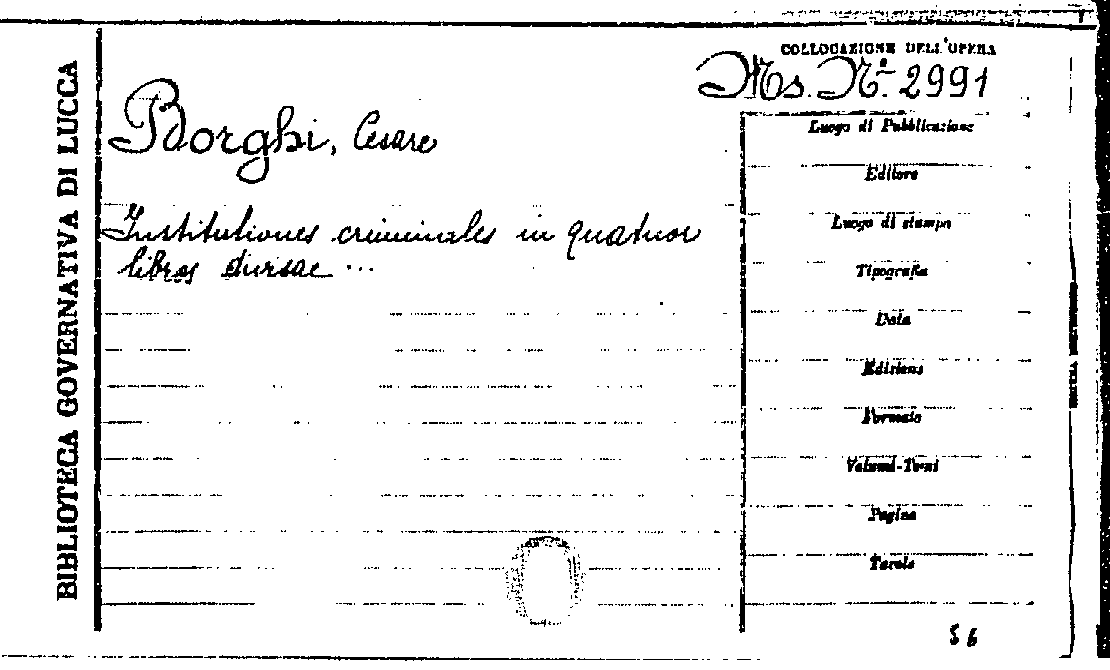 BIBLIOTECA GOVERNATIVA DI LUCCA
COLLOCAZIONE DELL'OPERA
Ms. Nº. 2991
Borghi, Cesare
Institutiones criminales in quatuor
libros
Luogo di Pubblicazione
Editore
Luogo di stampa
Tipografia
Data
Edizione
Formato
Volumi-Tomi
Pagine
Tavole
56